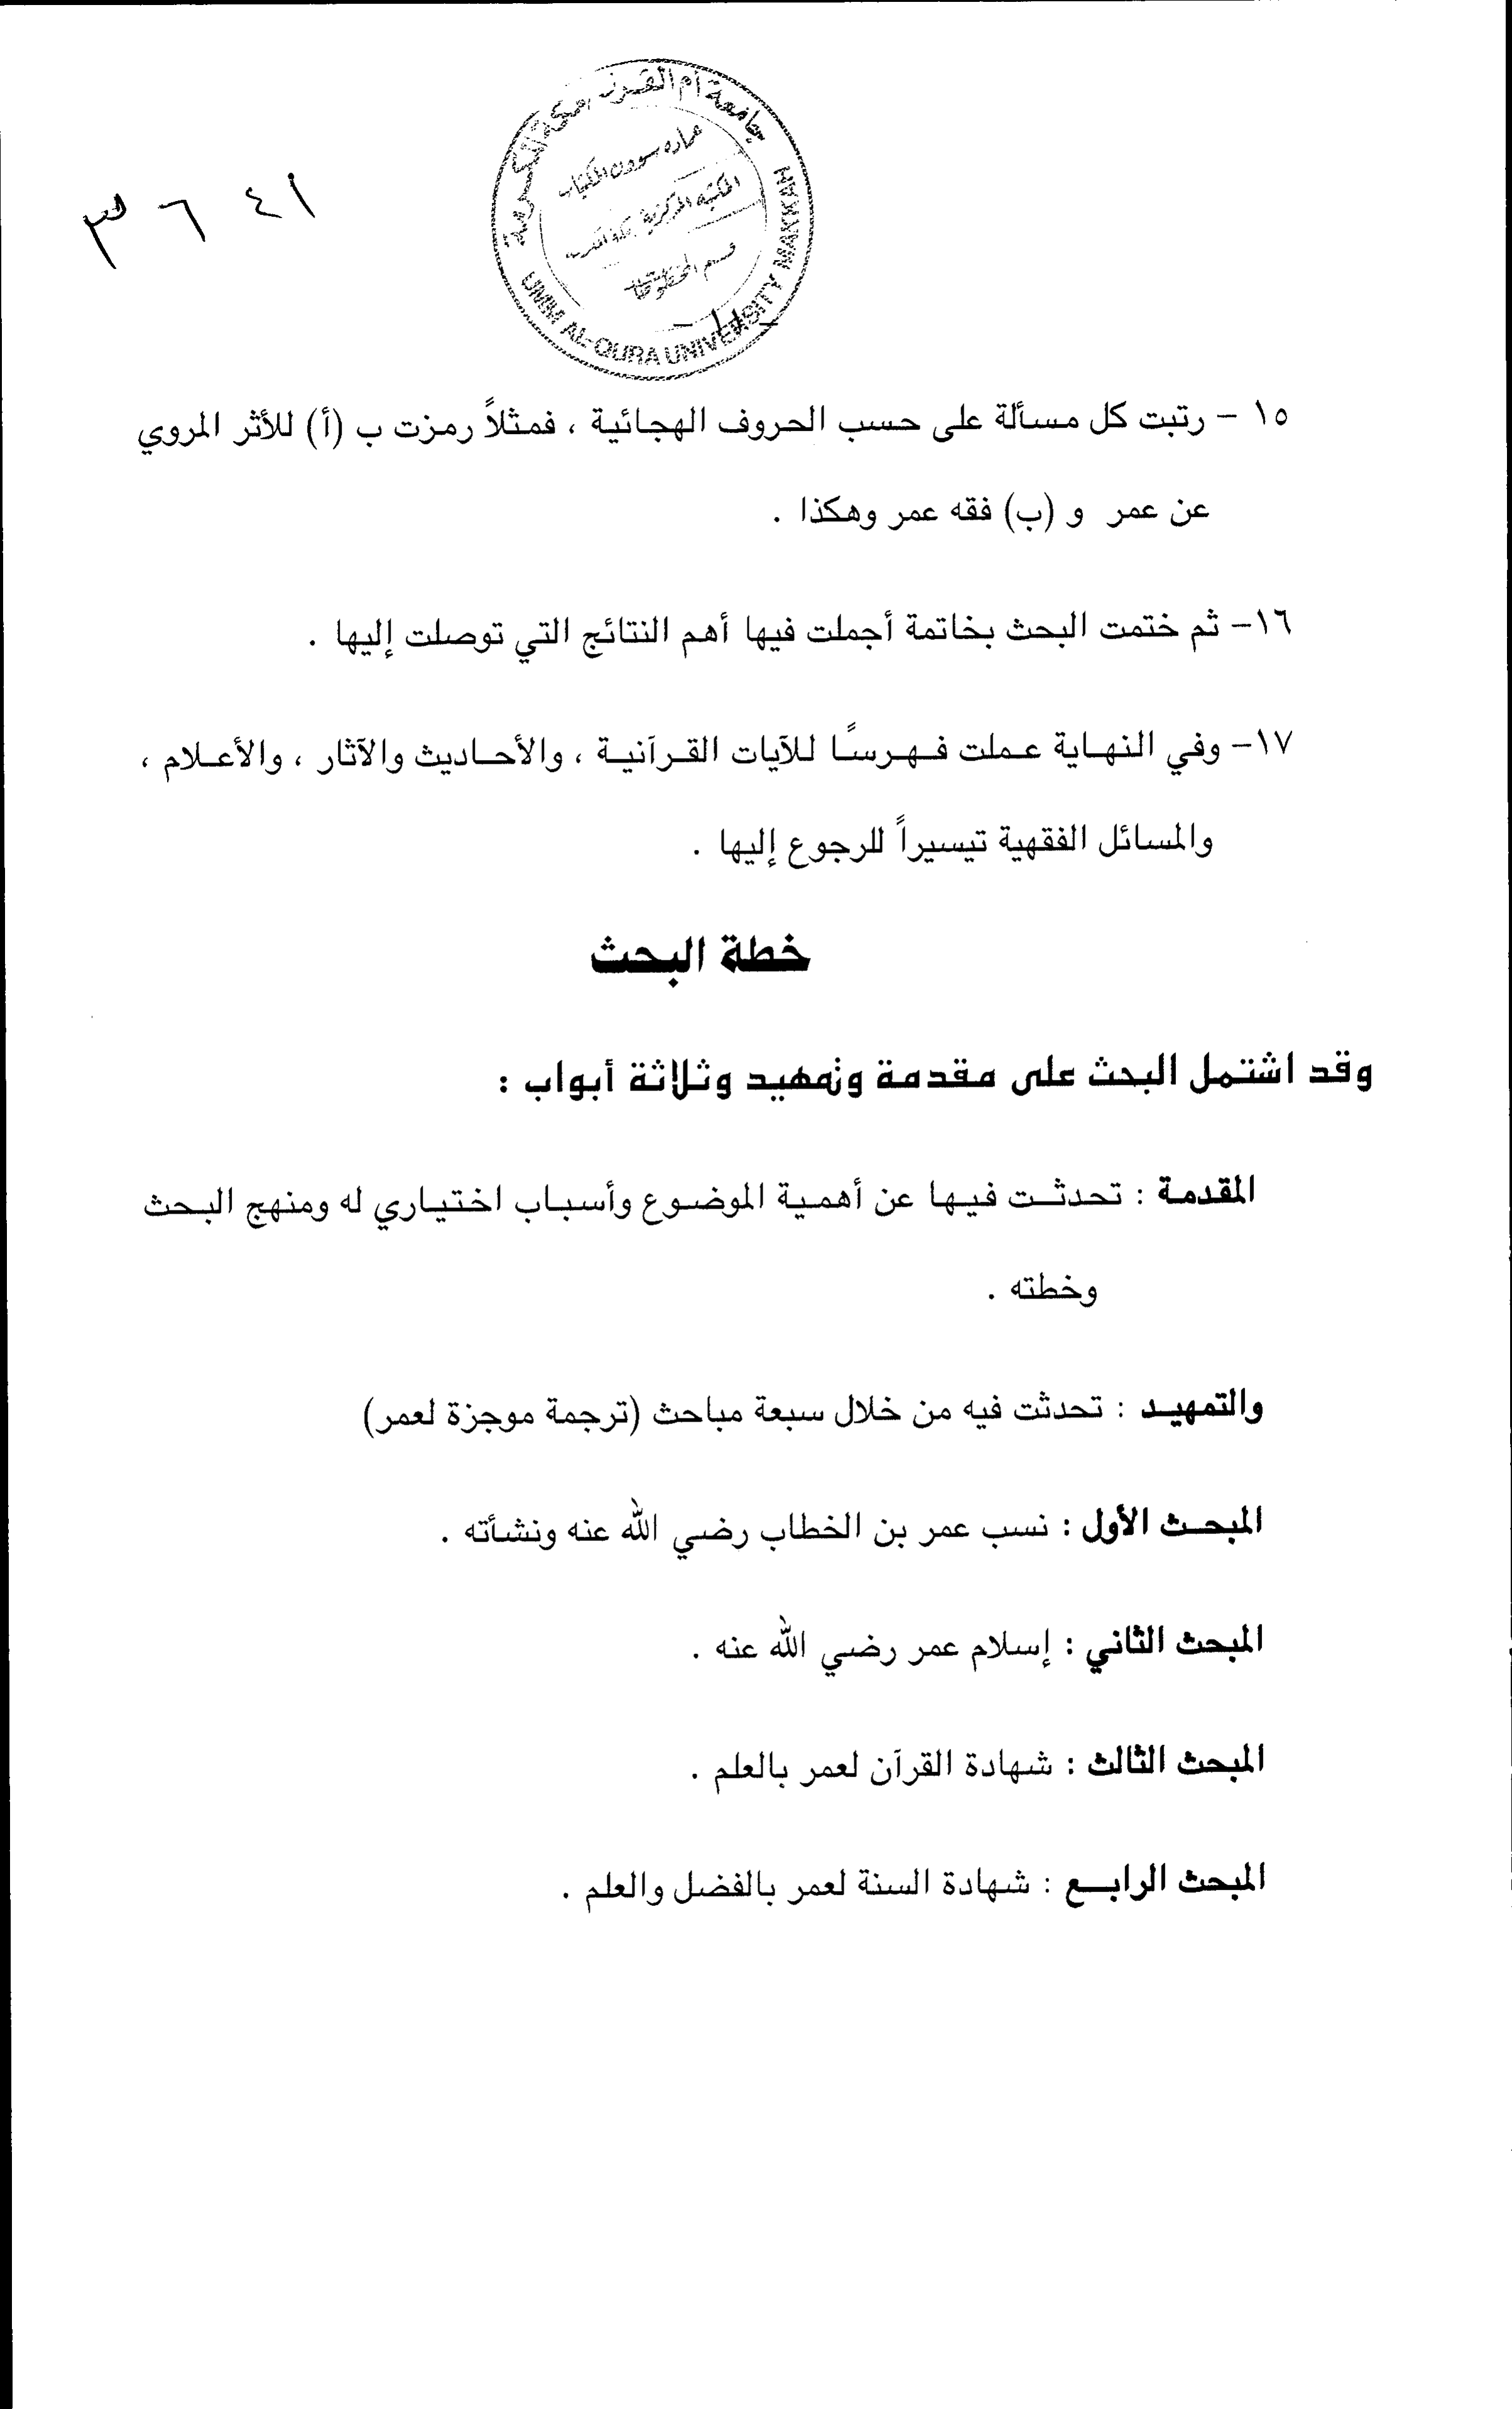 جامعة أم القرى بمكة المكرمة
عمادة شؤون المكتبات
المكتبة المركزية بمكة المكرمة
قسم المخطوطات
UMM AL-QURA UNIVERSITY MAKKAH
١٥ – رتبت كل مسألة على حسب الحروف الهجائية ، فمثلاً رمزت ب (أ) للأثر المروي
عن عمر و (ب) فقه عمر وهكذا .
١٦– ثم ختمت البحث بخاتمة أجملت فيها أهم النتائج التي توصلت إليها .
١٧– وفي النهاية عملت فهرسًا للآيات القرآنية ، والأحاديث والآثار ، والأعلام ،
والمسائل الفقهية تيسيراً للرجوع إليها .
خطة البحث
وقد اشتمل البحث على مقدمة وتمهيد وثلاثة أبواب :
المقدمة : تحدثت فيها عن أهمية الموضوع وأسباب اختياري له ومنهج البحث
وخطته .
والتمهيد : تحدثت فيه من خلال سبعة مباحث (ترجمة موجزة لعمر)
المبحث الأول : نسب عمر بن الخطاب رضي الله عنه ونشأته .
المبحث الثاني : إسلام عمر رضي الله عنه .
المبحث الثالث : شهادة القرآن لعمر بالعلم .
المبحث الرابع : شهادة السنة لعمر بالفضل والعلم .